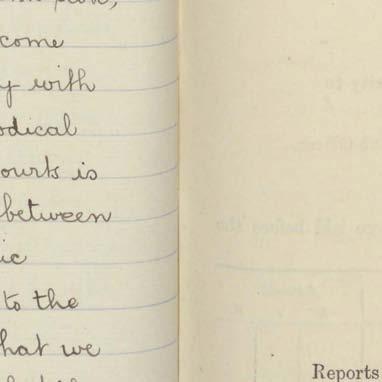 come
y with
odical
ourts is
between
ic
to the
hat we
Reports